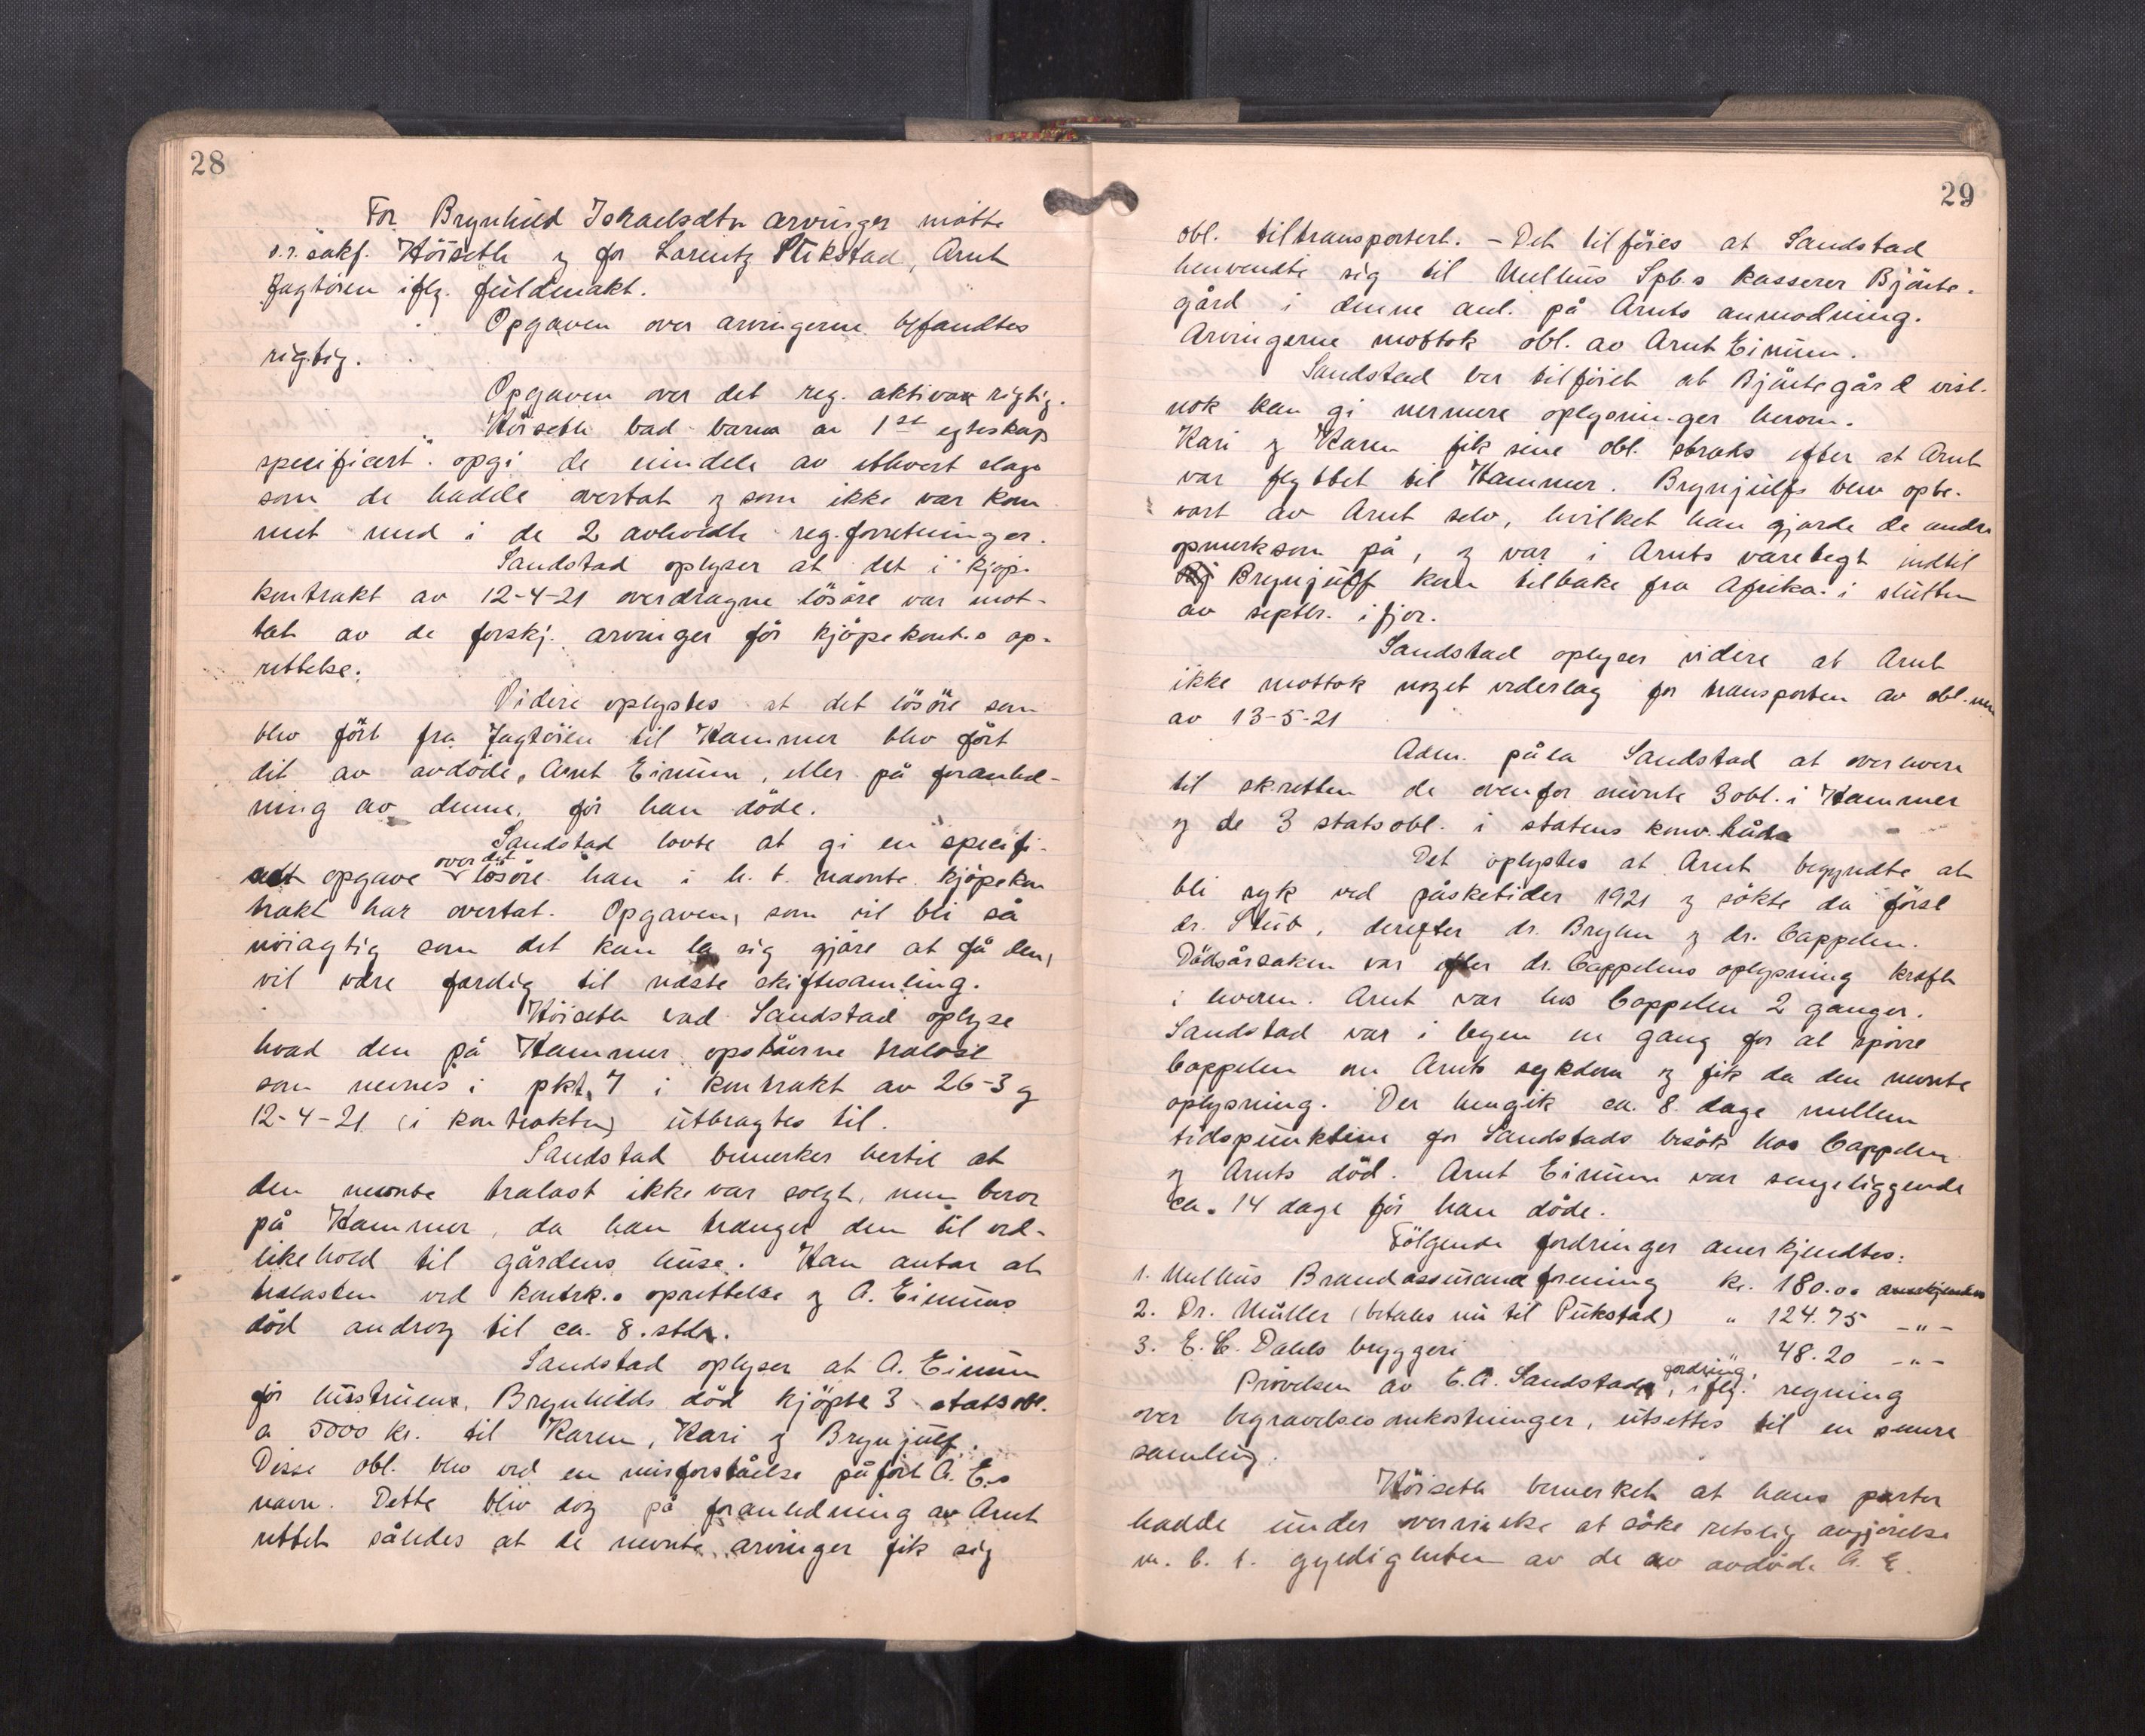 28
For Brynhild Iskaelsdtr arvinger møtte
o.r.sakf. Höiseth og for Lorentz Pükstad, Arnt
Jagtöien iflg. füldmakt.
Opgaven over arvingerne befandtes
rigtig.
Opgaven over det reg. aktiva rigtig.
Höiseth bad barna av 1st egteskap
specificert opgi de eiendele av ethvert slags
som de hadde overtat og som ikke var kom
met med i de 2 avholdte reg.forretninger.
Sandstad oplyser at det i kjøp-
kontrakt av 12-4-21 overdragne lösöre var mot-
tat av de forskj. arvinger för kjöpekont.s op-
rettelse.
Videre oplystes at det lösöre som
blev fört fra Jagtöien til Hammer blev fört
dit av avdöde, Arnt Eimüm, eller på foranled-
ning av denne, för han döde.
Sandstad lovte at gi en specifi-
sert opgave over det lösöre han i h. t. nævnte kjöpekon
trakt har overtat. Opgaven, som vil bli så
nöiagtig som det kan la sig gjöre at få den,
vil være færdig til næste skiftesamling.
Höiseth bad Sandstad oplyse
hvad den på Hammer opståerne tralast
som nevnes i pkt. 7 i kontrakt av 26-3 og
12-4-21 (i kontrakten) ütbragtes til.
Sandstad bemerker hertil at
den nevnte tralast ikke var solgt, men beror
på Hammer, da han trænger den til ved-
likehold til gårdens hüse. Han antar at
tralasten ved kontrk.s oprettelse og A. Eimüms
död androg til ca. 8 stdr.
Sandstad oplyser at A. Eimüm
för hüstrüens, Brynhilds död kjöpte 3 statsobl.
a 5000 kr. til Karen, Kari og Brynjülf.
Disse obl. blev ved en misforståelse påfört A. E.s
navn. Dette blev dog på foranledning av Arnt
rettet således at de nevnte arvinger fik sig
29
obl. tiltransportert. - Det tilföies at Sandstad
henvendte sig til Melhüs Spb.s kasserer Bjärte-
gård i denne anl. på Arnts anmodning.
Arvingerne mottok obl. av Arnt Eimüm.
Sandstad ber tilföiet at Bjärtegård vist-
nok kan gi nermere oplysninger herom.
Kari og Karen fik sine obl. straks efter at Arnt
var flyttet til Hammer. Brynjülfs blev opbe-
vart av Arnt selv, hvilket han gjorde de andre
opmerksom på, og var i Arnts varetegt indtil
Brynjülf kom tilbake fra Afrika i slütten
av septbr. ifjor.
Sandstad oplyser videre at Arnt
ikke mottok noget vederlag for transporten av obl.nen
av 13-5-21
Adm. påla Sandstad at overlevere
til sk.retten de ovenfor nevnte 3 obl. i Hammer
og de 3 statsobl. i statens konv. håda
Det oplystes at Arnt begyndte at
bli syk ved påsketider 1921 og sökte da först
dr. Stüb, derefter dr. Bryhn og dr. Cappelen.
Dödsårsaken var efter dr. Cappelens oplysning kræft
i leveren. Arnt var hos Cappelen 2 ganger.
Sandstad var i byen en gang for at spörre
Cappelen om Arnts sykdom og fik da den nevnte
oplysning. Der hengik ca. 8 dage mellem
tidspünktene for Sandstads besök hos Cappelen
og Arnts död. Arnt Eimüm var sengeliggende
ca. 14 dage för han döde.
Fölgende fordringer anerkjendtes:
1. Melhüs Brandassüranceforening kr. 180.00 anerkjendes
2. Dr. Müller (betales nü til Pükstad) " 124.75 -"-
3. E. C. Dahls bryggeri " 48.20 -"-
Prövelsen av E.A. Sandstads fordring, iflg. regning
over begravelsesomkostninger, ütsettes til en senere
samling.
Höiseth bemerket at hans parter
hadde ünder overveielse at söke retslig avgjörelse
m. h. t. gyldigheten av de av avdöde A. E.